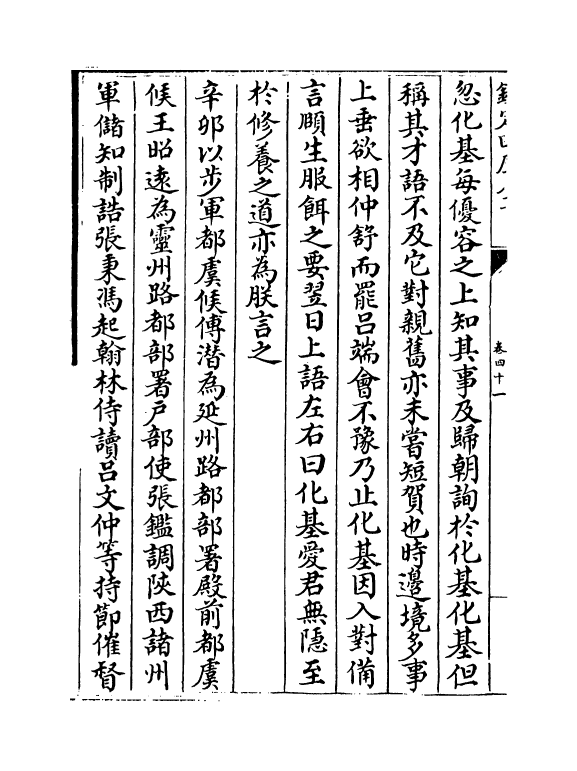 忽化基每優容之上知其事及歸朝詢於化基化基但
稱其才語不及它對親舊亦未嘗短賀也時邊境多事
上垂欲相仲舒而罷吕端會不豫乃止化基因入對備
言頤生服餌之要翌日上語左右曰化基愛君無隠至
於修養之道亦為朕言之
辛夘以步軍都虞候傅潛為延州路都部署殿前都虞
候王昭逺為靈州路都部署户部使張鑑調陜西諸州
軍儲知制誥張秉馮起翰林侍讀吕文仲等持節催督
卷四十一